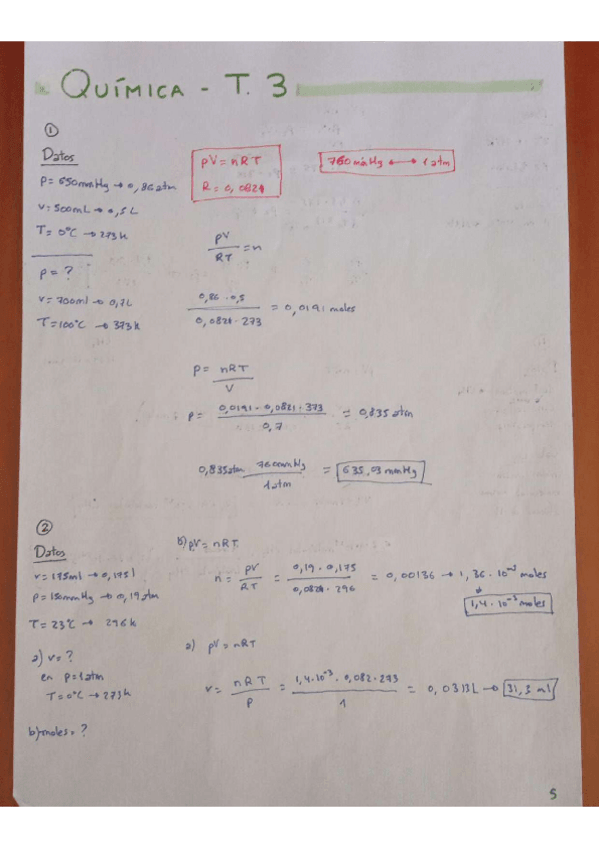 QUÍMICA - T. 3
①
Datos
P= 650mmHg → 0,86atm
V=500mL → 0,5 L
T= 0°C → 273k
pV = nRT
R = 0,0821
760mmHg ↔ 1atm
P = ?
V= 700ml → 0,7L
T=100°C → 373k
pV/RT = n
0,86 · 0,5 / 0,0821 · 273 = 0,0191 moles
P = nRT / V
P = 0,0191 · 0,0821 · 373 / 0,7 = 0,835 atm
0,835atm 760mmHg / 1atm = 635,03 mmHg
②
Datos
V=175ml → 0,175 l
P=150mmHg → 0,19 atm
T= 23°C → 296k
a) V= ?
en P=1atm
T=0°C → 273k
b) moles = ?
b) pV = nRT
n = pV / RT = 0,19 · 0,175 / 0,0821 · 296 = 0,00136 → 1,36 · 10⁻³ moles
1,4 · 10⁻³ moles
a) pV = nRT
V = nRT / P = 1,4·10⁻³ · 0,082 · 273 / 1 = 0,0313L → 31,3 ml
5